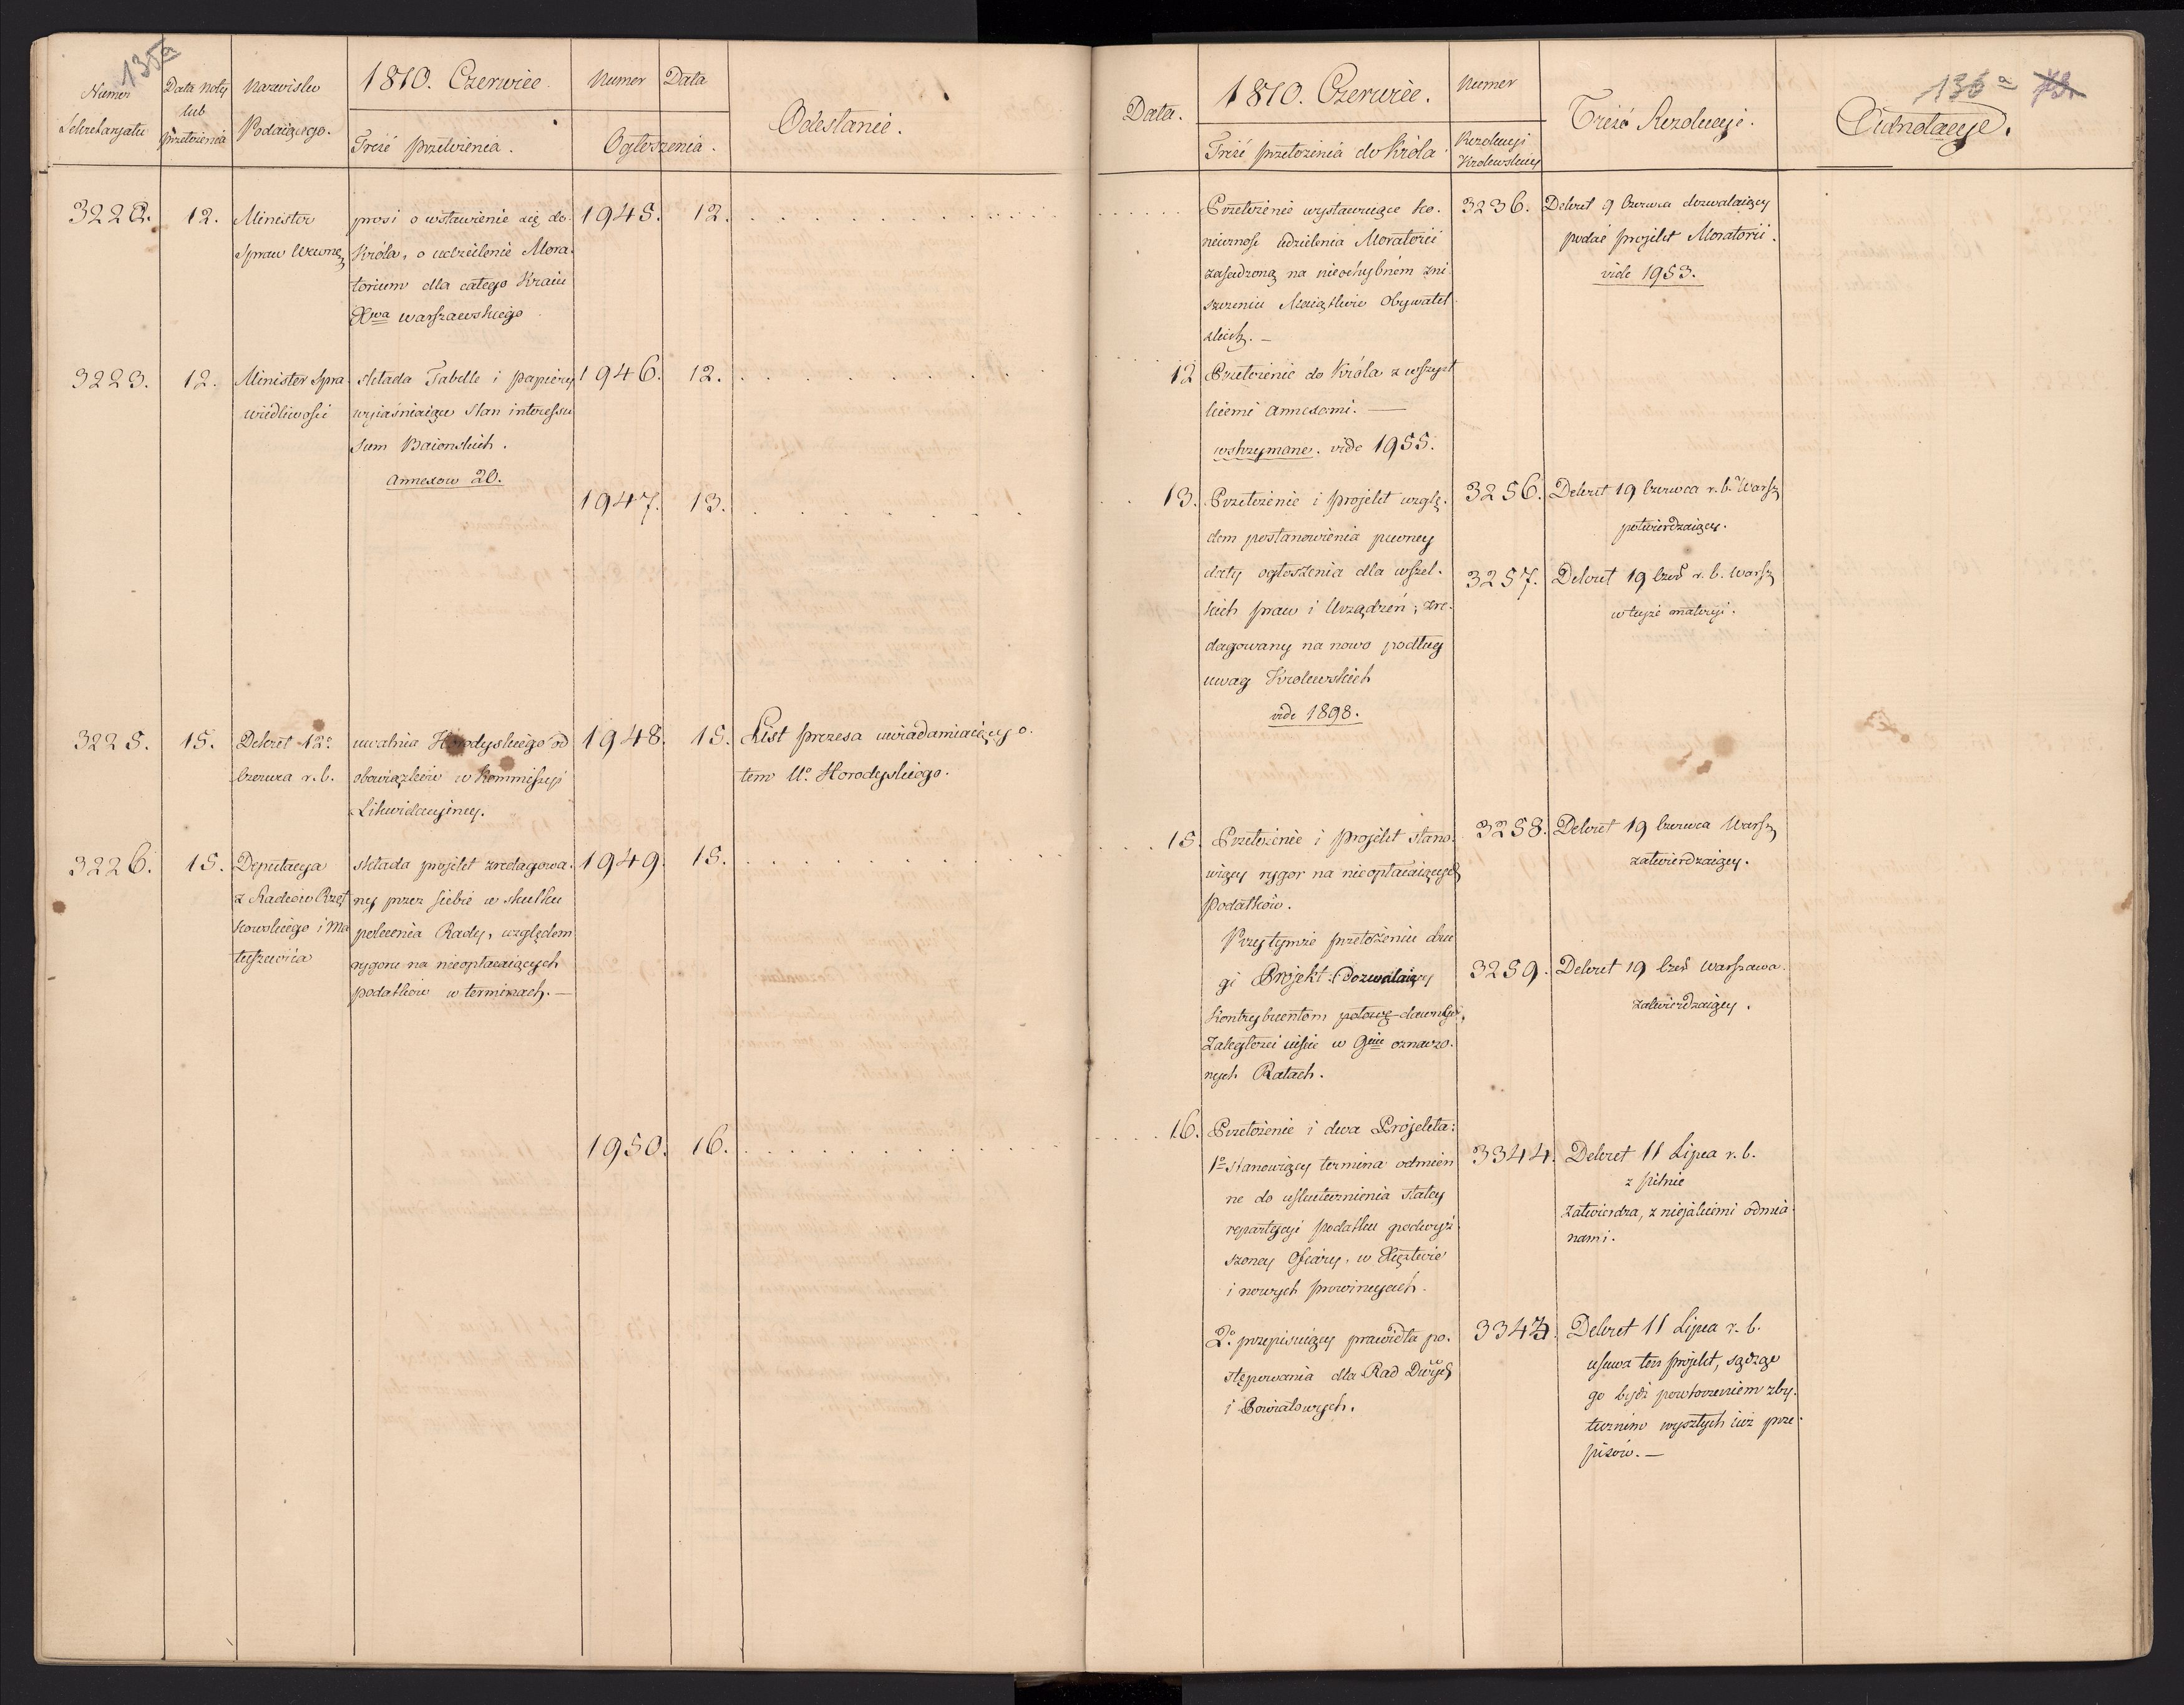 135a
Numer
Sekretaryatu
Data Noty
lub
przełożenia
Nazwisko
Podaiącego.
1810. Czerwiec.
Treść przełożenia.
Numer Data
Ogłoszenia.
Odesłanie.
3222. 12. Minister
Spraw Wewnę.
prosi o wstawienie się do
Króla, o udzielenie Mora-
torium dla całego Kraiu
Xwa warszawskiego
1945. 12.
3223. 12. Minister Spra-
wiedliwości
składa Tabelle i papiery
wyiaśniaiące stan interessu
Sum Baionskich.
annexow 20.
1946. 12.
1947. 13.
3225. 15. Dekret 12o
Czerwca r. b.
uwalnia Horodyskiego od
obowiązków w Kommissyi
Likwidacyiney.
1948. 15. List prezesa uwiadamiaiący o
tem Uo Horodyskiego.
3226. 15. Deputacya
z Radcow Rzęt
kowskiego i Ma
tuszewica
składa projekt zredagowa-
ny przez siebie w skutku
polecenia Rady, względem
rygoru na nieopłacaiących
podatków w terminach. —
1949. 15.
1950. 16.
136a 73
Data.
1810. Czerwiec.
Treść przełożenia do Króla
Numer
Rezolucyi
Krolewskiey
Treść Rezolucyi.
Adnotacye.
Przełożenie wystawuiące ko-
nieczność udzielenia Moratorii
zasadzoną na nieochybném zni-
szczeniu Maiątków Obywatel-
skich. —
3236. Dekret 9 Czerwca dozwalaiący
podać projekt Moratorii.
vide 1953.
12 Przełożenie do Króla z wszyst
kiemi annexami. —
wstrzymane. vide 1955.
13. Przełożenie i projekt wzglę-
dem postanowienia pewney
daty ogłoszenia dla wszel-
kich praw i Urządzeń, zre-
dagowany na nowo podług
uwag Krolewskich
vide 1898.
3256. Dekret 19 Czerwca r. b. Warsz
potwierdzaiący.
3257. Dekret 19 Czer r. b. Warsz
w teyże materyi.
15. Przełożenie i projekt stano-
wiący rygor na nieopłacaiących
Podatków.
3258. Dekret 19 Czerwca Warsz
zatwierdzaiący.
Przy tymże przełożeniu dru
gi Projekt: Dozwalaiący
Kontrybuentom połowę dawnéy
Zaległości uiścić w 9ciu oznaczo-
nych Ratach.
3259. Dekret 19 Czer Warszawa.
Zatwierdzaiący.
16. Przełożenie i dwa Projekta:
1o stanowiący termina odmien
ne do uskutecznienia stałey
repartycyi podatku podwyż
szoney Ofiary, w Xięztwie
i nowych prowincyach.
3344. Dekret 11 Lipca r. b.
z Pilnic
zatwierdza, z nieiakiemi odmia-
nami.
2o przepisuiący prawidła po-
stępowania dla Rad Dwych
i Powiatowych.
3345. Dekret 11 Lipca r. b.
usuwa ten projekt, sądząc
go bydź powtorzeniem zby-
tecznem wyszłych iuż prze-
pisów. —